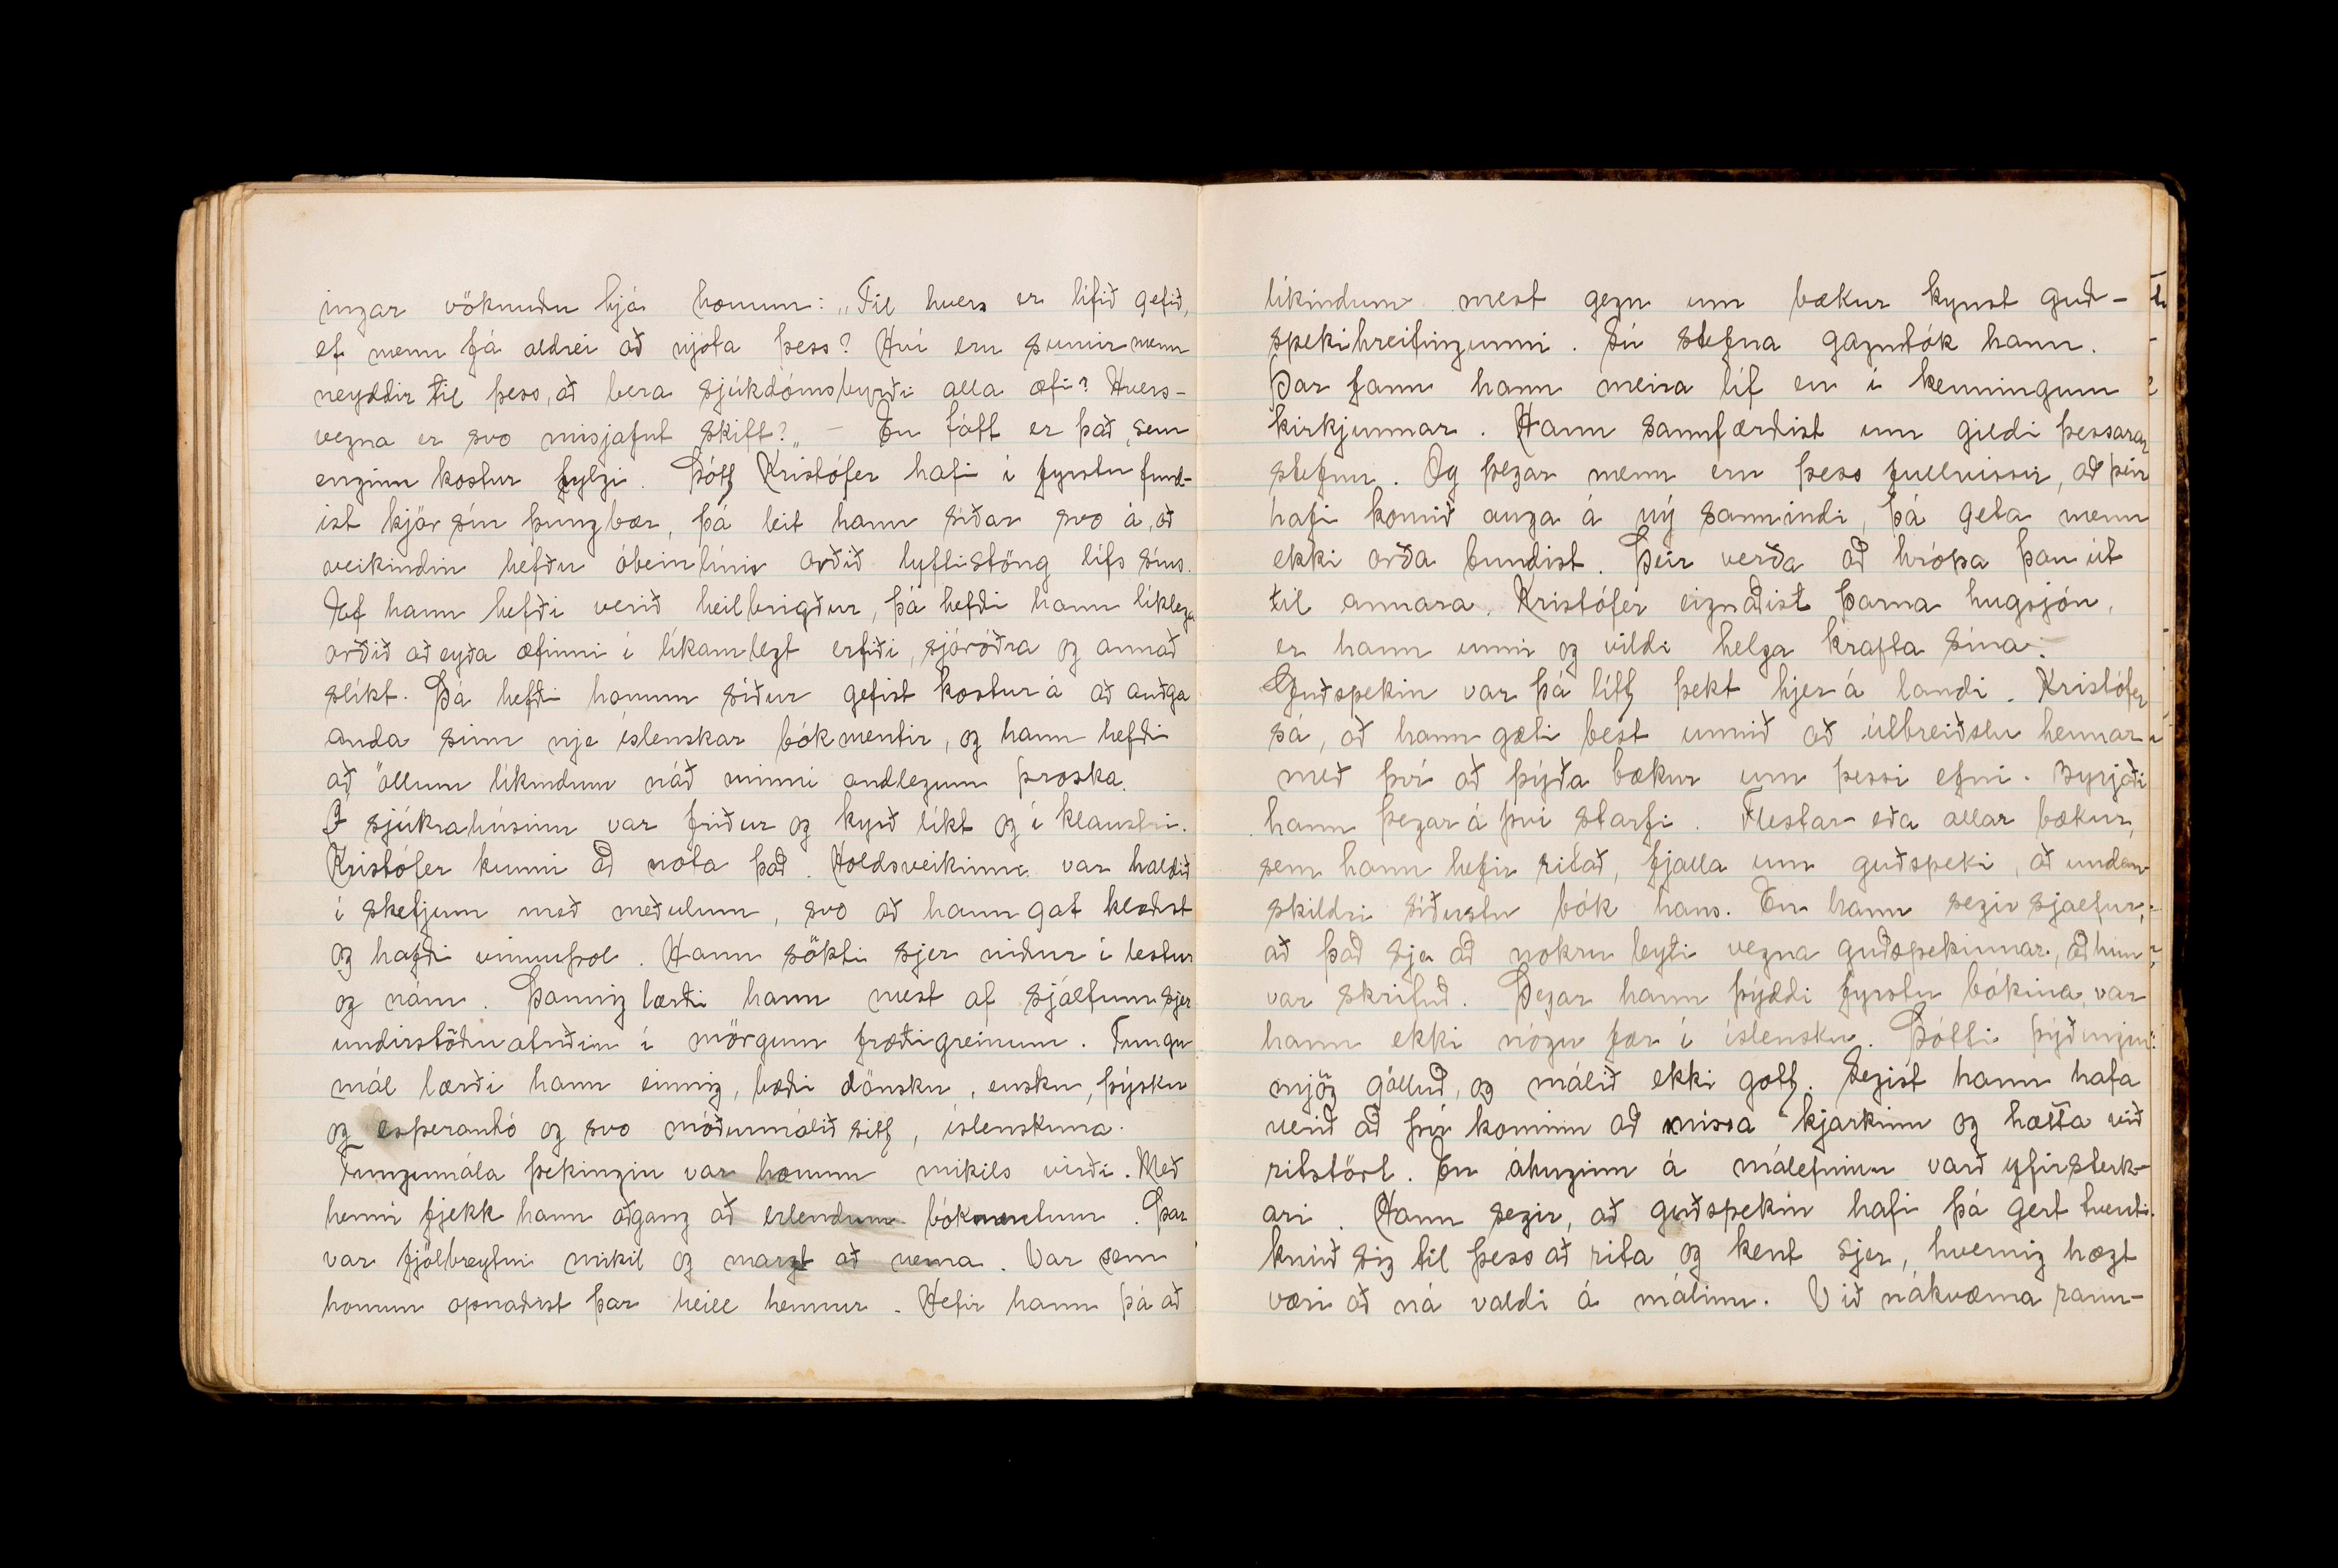 ingar vöknuðu hjá honum: „Til hvers er lífið gefið,
ef menn fá aldrei að njóta þess? Hví eru sumir menn
neyddir til þess, að bera sjúkdómsbyrði alla æfi? Hvers-
vegna er svo misjafnt skift?„ – En fátt er það, sem
enginn kostur fylgi. Þótt Kristófer hafi í fyrstu fund-
ist kjör sín þungbær, þá leit hann síðar svo á, að
veikindin hefðu óbeinlínis orðið lyftistöng lífs síns.
Ef hann hefði verið heilbrigður, þá hefði hann líklega
orðið að eyða æfinni í líkamlegt erfiði, sjóróðra og annað
slíkt. Þá hefði honum síður gefist kostur á að auðga
anda sinn nje íslenskar bókmentir, og hann hefði
að öllum líkindum náð minni andlegum þroska.
Í sjúkrahúsinu var friður og kyrð líkt og í klaustri.
Kristófer kunni að nota það. Holdsveikinni var haldið
í skefjum með meðulum, svo að hann gat klæðst
og hafði vinnuþol. Hann sökti sjer niður í lestur
og nám. Þannig lærði hann mest af sjálfum sjer
undirstöðuatriðin í mörgum fræðigreinum. Tungu
mál lærði hann einnig, bæði dönsku, ensku, þýsku
og esperantó og svo móðurmálið sitt, íslenskuna.
Tungumála þekingin var honum mikils virði. Með
henni fjekk hann aðgang að erlendum bókmentum. Þar
var fjölbreytni mikil og margt að nema. Var sem
honum opnaðist þar heill heimur. Hefir hann þá að
líkindum mest gegn um bækur kynst guð-
spekihreifingunni. Sú stefna gagntók hann.
Þar fann hann meira líf en í kenningum
kirkjunnar. Hann sannfærðist um gildi þessarar
stefnu. Og þegar menn eru þess fullvissir, að þeir
hafi komið auga á ný sannindi, þá geta menn
ekki orða bundist. Þeir verða að hrópa þau út
til annara. Kristófer eignaðist þarna hugsjón,
er hann unni og vildi helga krafta sína.
Guðspekin var þá lítt þekt hjer á landi. Kristófer
sá, að hann gæti best unnið að útbreiðslu hennar
með því að þýða bækur um þessi efni. Byrjaði
hann þegar á því starfi. Flestar eða allar bækur,
sem hann hefir ritað, fjalla um guðspeki, að undan-
skildri síðustu bók hans. En hann segir sjálfur,
að það sje að nokru leyti vegna guðspekinnar, að hún
var skrifuð. Þegar hann þýddi fyrstu bókina, var
hann ekki nógu fær í íslensku. Þótti þýðingin
mjög gölluð, og málið ekki gott. Segist hann hafa
verið að því kominn að missa kjarkinn og hætta við
ritstörf. En áhuginn á málefninu varð yfirsterk-
ari. Hann segir, að guðspekin hafi þá gert tvent:
knúð sig til þess að rita og kent sjer, hvernig hægt
væri að ná valdi á málinu. Við nákvæma rann-